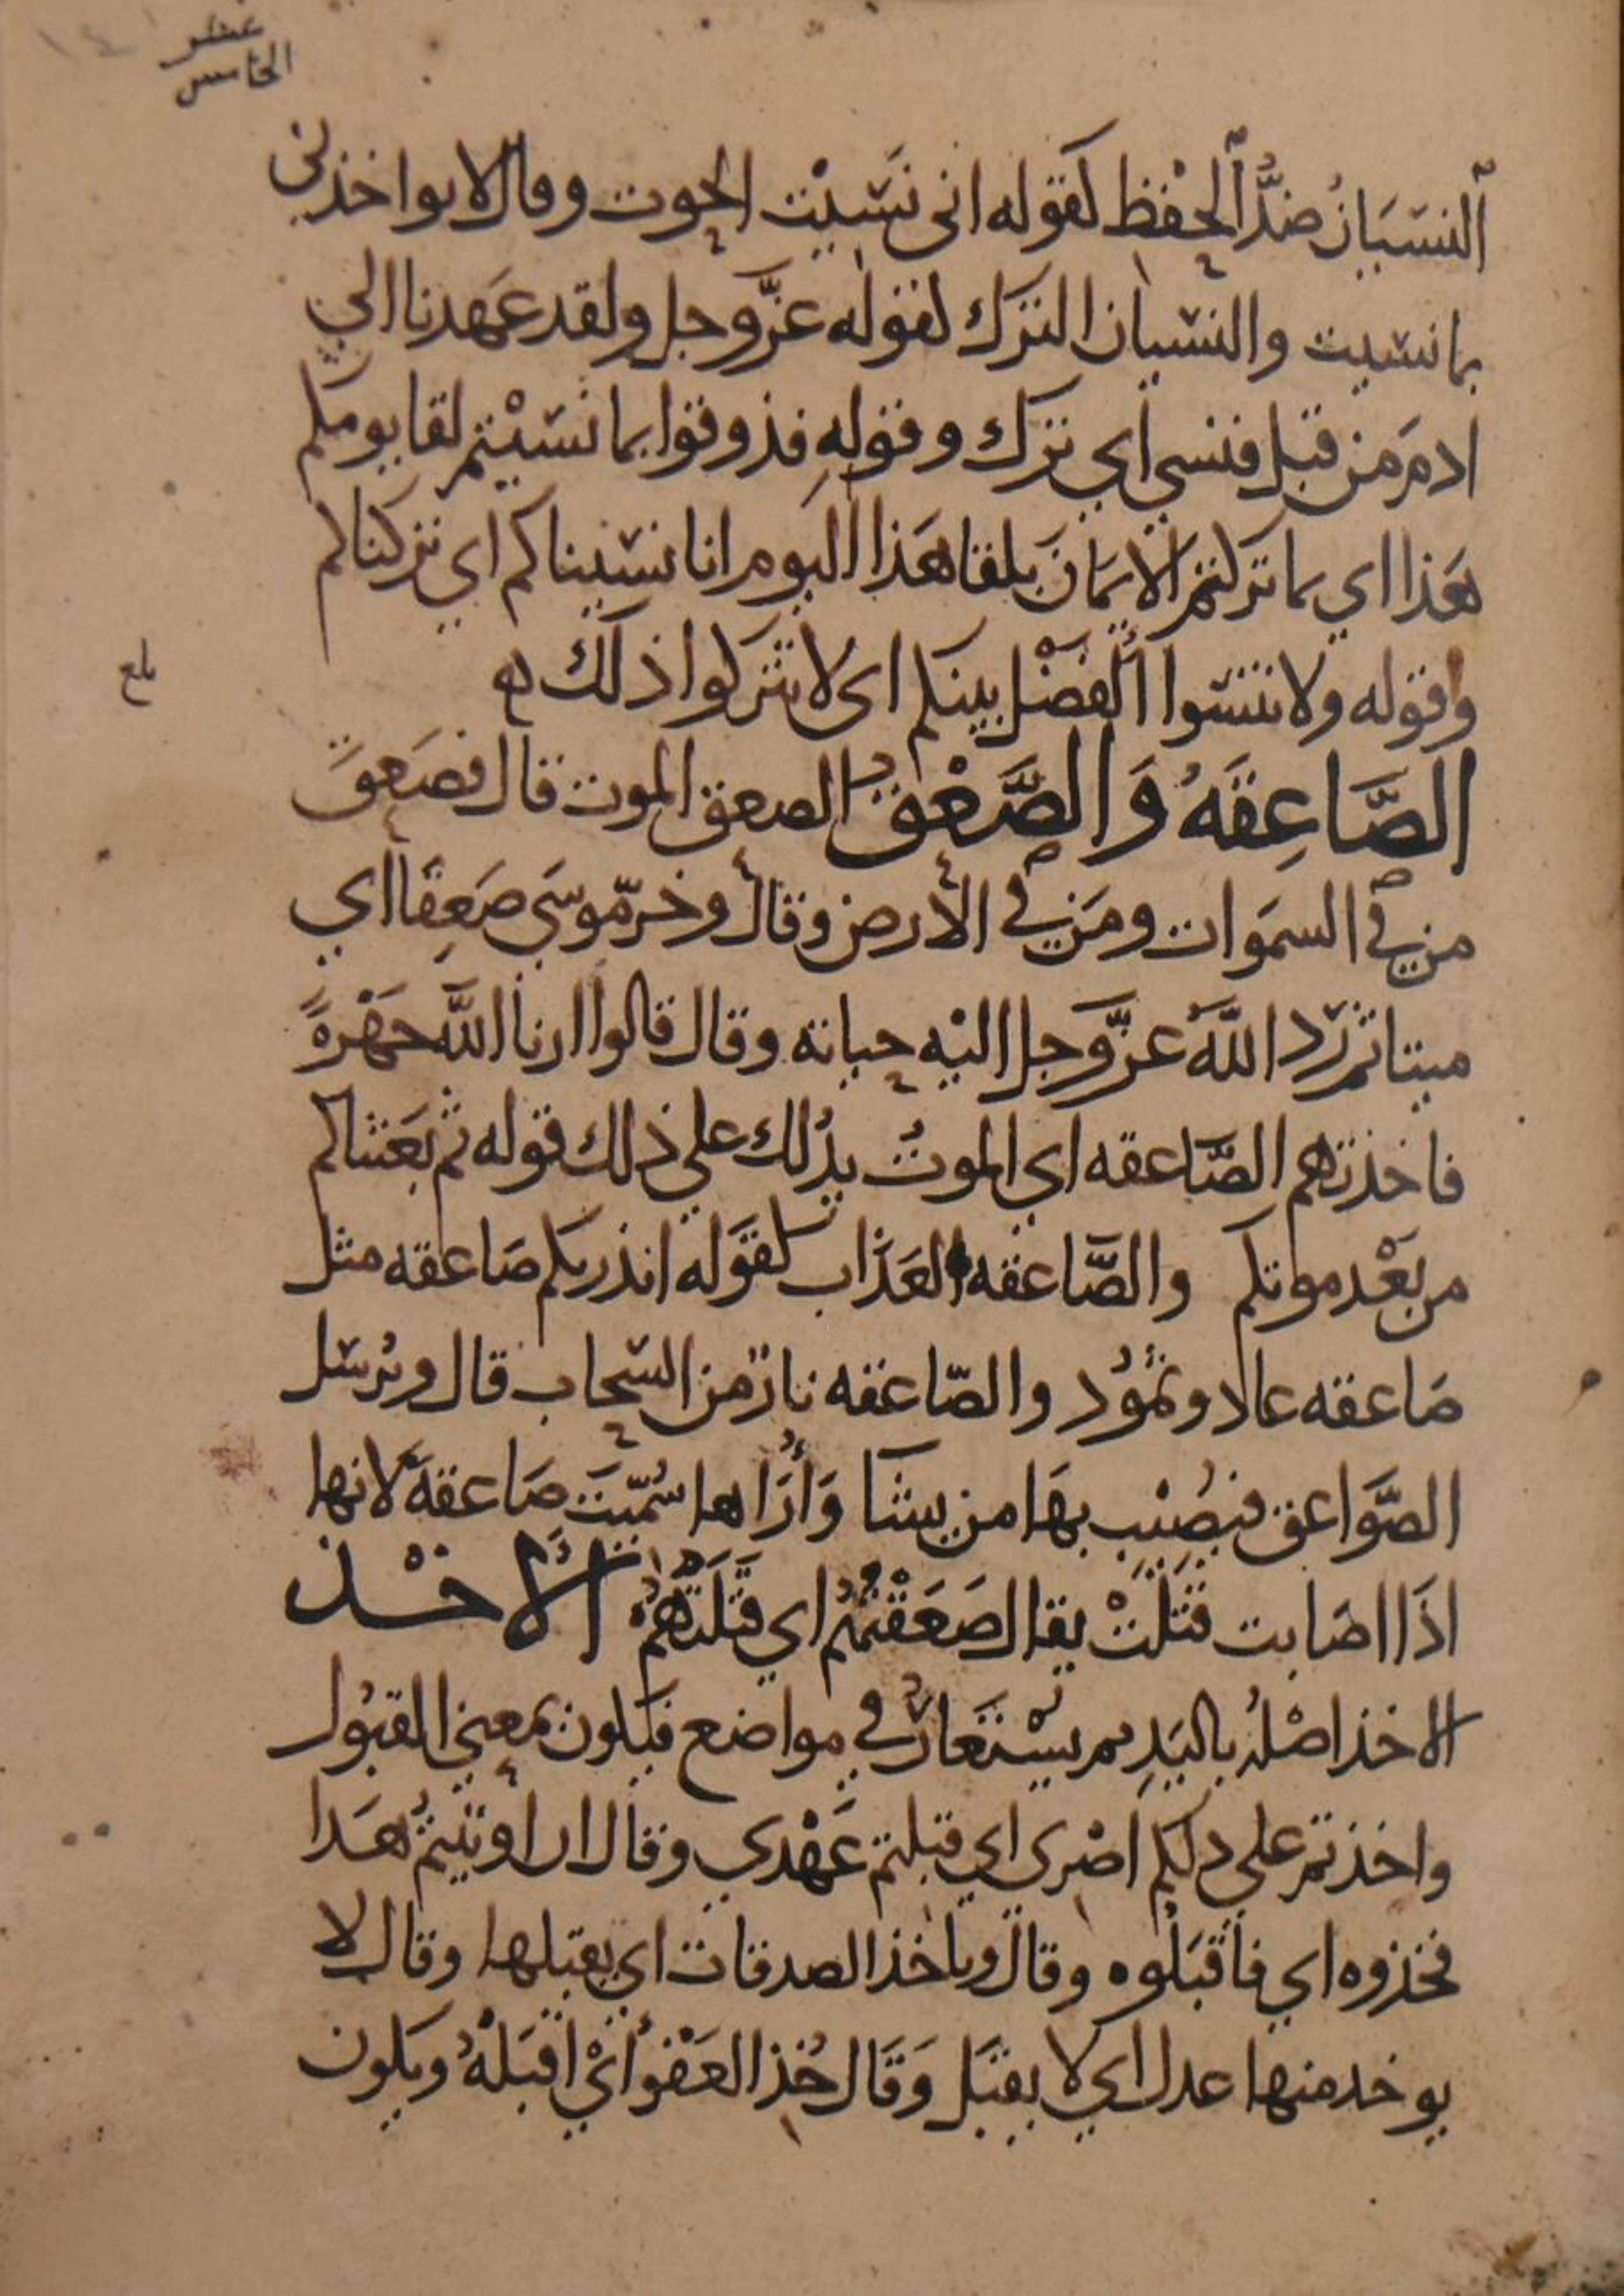 عشر
الخامس
النسيان ضدُّ الحفظ كقوله انى نَسيْت الحوت وقال لا تواخذنى
بما نسيت والنسيان الترك كقوله عزَّ وجل ولقد عَهدنا الي
ادمَ من قبل فنسي اي ترك وقولهِ فذوقوا بما نَسيْتم لقا يومكم
هَذا اي بما تركتم الايمَانَ بلقا هَذا اليوم انا نسيناكم اي تركناكم
وقوله ولا تنسوا الفضْل بينكم اى لا تتركوا ذلك
بلغ
الصَّاعِقَهُ وَالصَّعْق الصعق الموت قال فصَعِقَ
من في السمَوات ومَن في الأرض وقال وخرّ موسَي صَعِقًا اي
ميتا ثم رَد اللَّهُ عزَّ وجل اليْه حياته وقال قالوا ارنا اللَّه جَهْرةً
فاخذتهم الصَّاعقه اي الموتُ يدُلك علي ذلك قوله ثم بَعَثناكم
من بَعْد موتكم والصَّاعقه العَذَاب كقَوله انذرتكم صَاعقه مثل
صَاعقه عاد وثمُود والصّاعقه نارٌ من السّحاب قال ويُرسَل
الصَّواعق فيصُيْب بهَا من يشَا وَأُرَاها سُمّيَت صَاعقهً لانها
اذَا اصَابت قتَلَتْ يقال صَعَقْتهُم اي قَتَلَتْهُمْ الأخْذ
الاخذ اصْلُه باليَدِ ثم يسْتَعَارُ في مواضع فيَكون بمعني القبُول
واخذتم علي دلكم اصْرى اي قبلتم عَهْدي وقال ان اوتيتمُ هَذا
فخذوه اي فاقبَلوه وقال وياخذ الصدقات اي يقبلها وقال لا
يوخد منها عدل اي لا يقبَل وَقَال خُذ العَفْو أيْ اقبَلهُ ويَكون